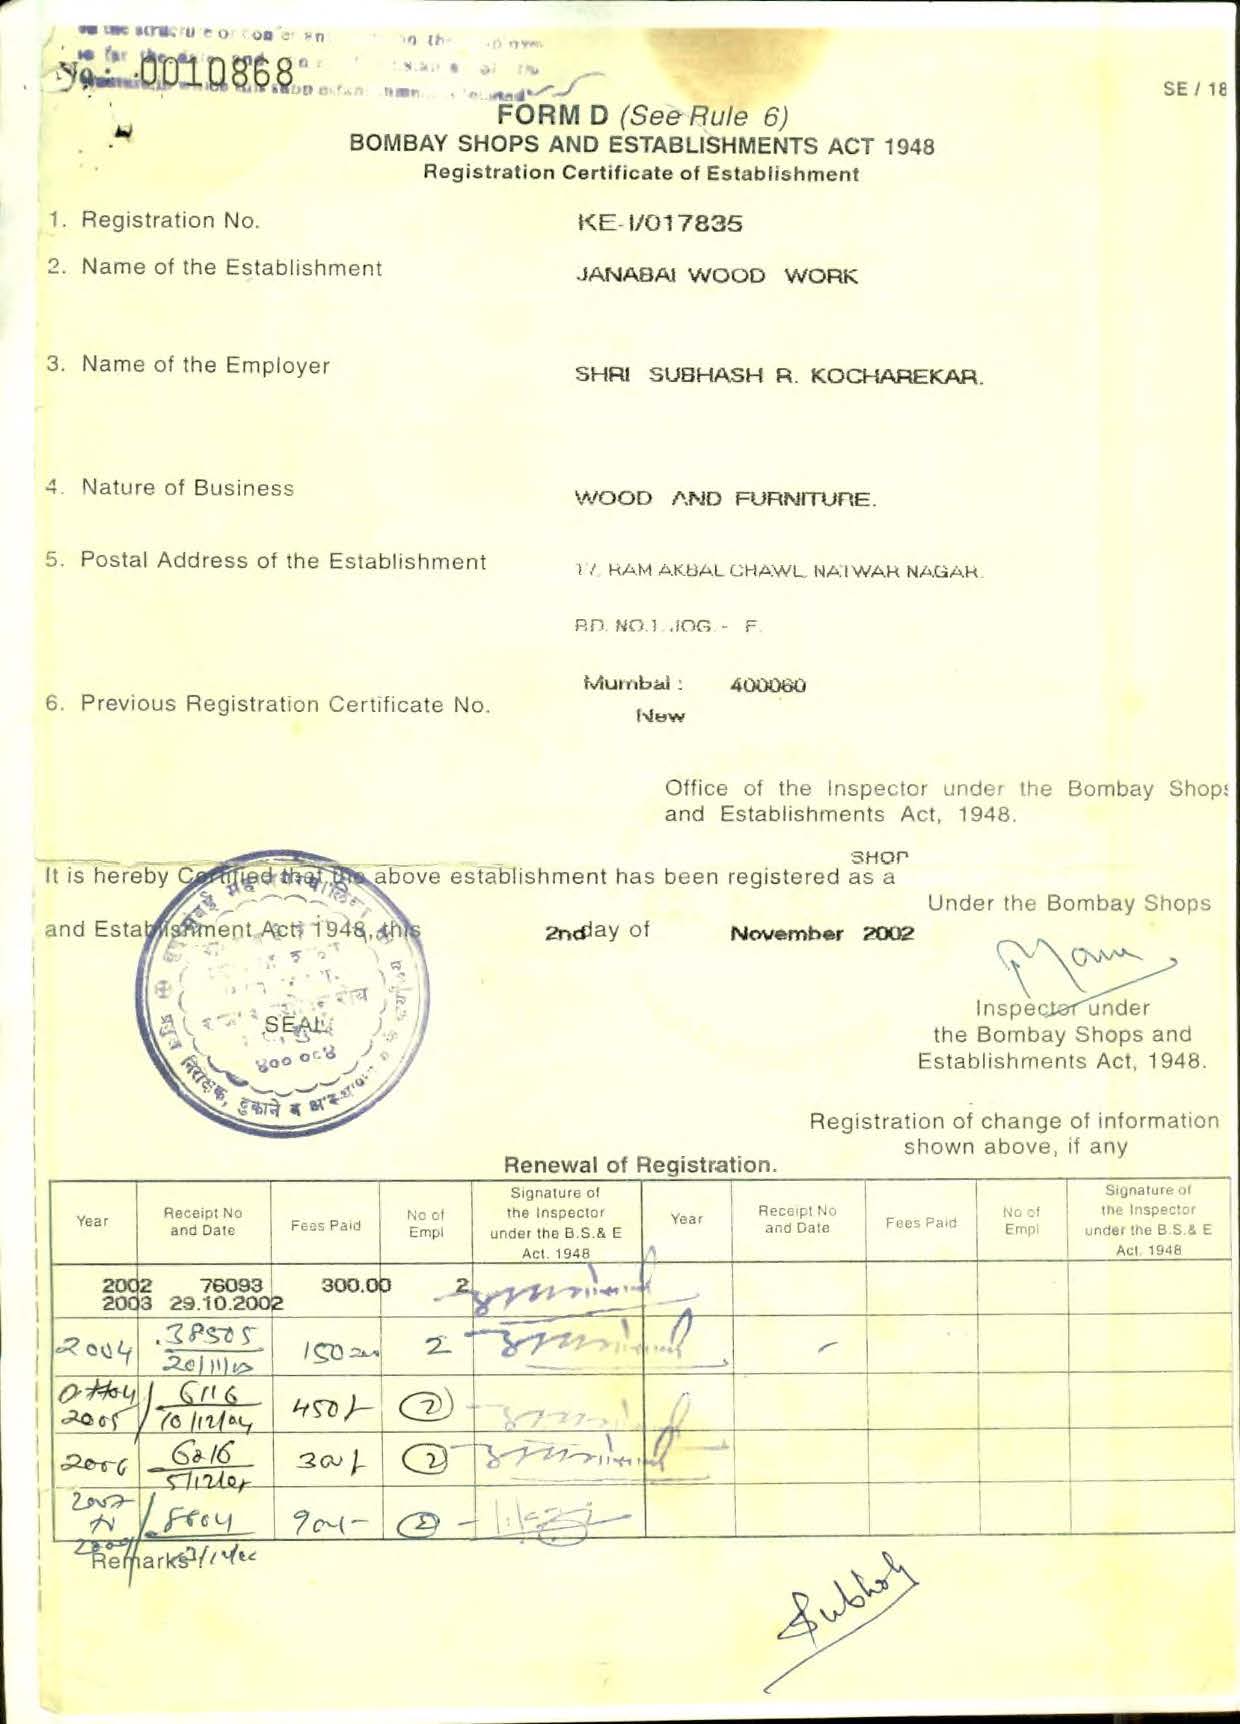 No: 0010868
SE / 18
FORM D (See Rule 6)
BOMBAY SHOPS AND ESTABLISHMENTS ACT 1948
Registration Certificate of Establishment
1. Registration No. KE-I/017835
2. Name of the Establishment JANABAI WOOD WORK
3. Name of the Employer SHRI SUBHASH R. KOCHAREKAR.
4. Nature of Business WOOD AND FURNITURE.
5. Postal Address of the Establishment 17, RAM AKBAL CHAWL, NATWAR NAGAR.
RD. NO.1. JOG. - E.
Mumbai : 400060
6. Previous Registration Certificate No. New
Office of the Inspector under the Bombay Shops
and Establishments Act, 1948.
SHOP
It is hereby Certified that the above establishment has been registered as a
Under the Bombay Shops
and Establishment Act, 1948, this 2nd day of November 2002
SEAL
४०० ०८४
निरीक्षक, दुकाने व
Inspector under
the Bombay Shops and
Establishments Act, 1948.
Registration of change of information
shown above, if any
Renewal of Registration.
Year Receipt No and Date Fees Paid No of Empl Signature of the Inspector under the B.S.& E Act. 1948 Year Receipt No and Date Fees Paid No of Empl Signature of the Inspector under the B.S.& E Act. 1948
2002 76093 300.00 2
2003 29.10.2002
2004 38505 150 2
20/11/03
2005 6116 450/- 2
10/12/04
2006 6216 300/- 2
5/12/05
2007 8804 900/- 2
Remarks
Subhash